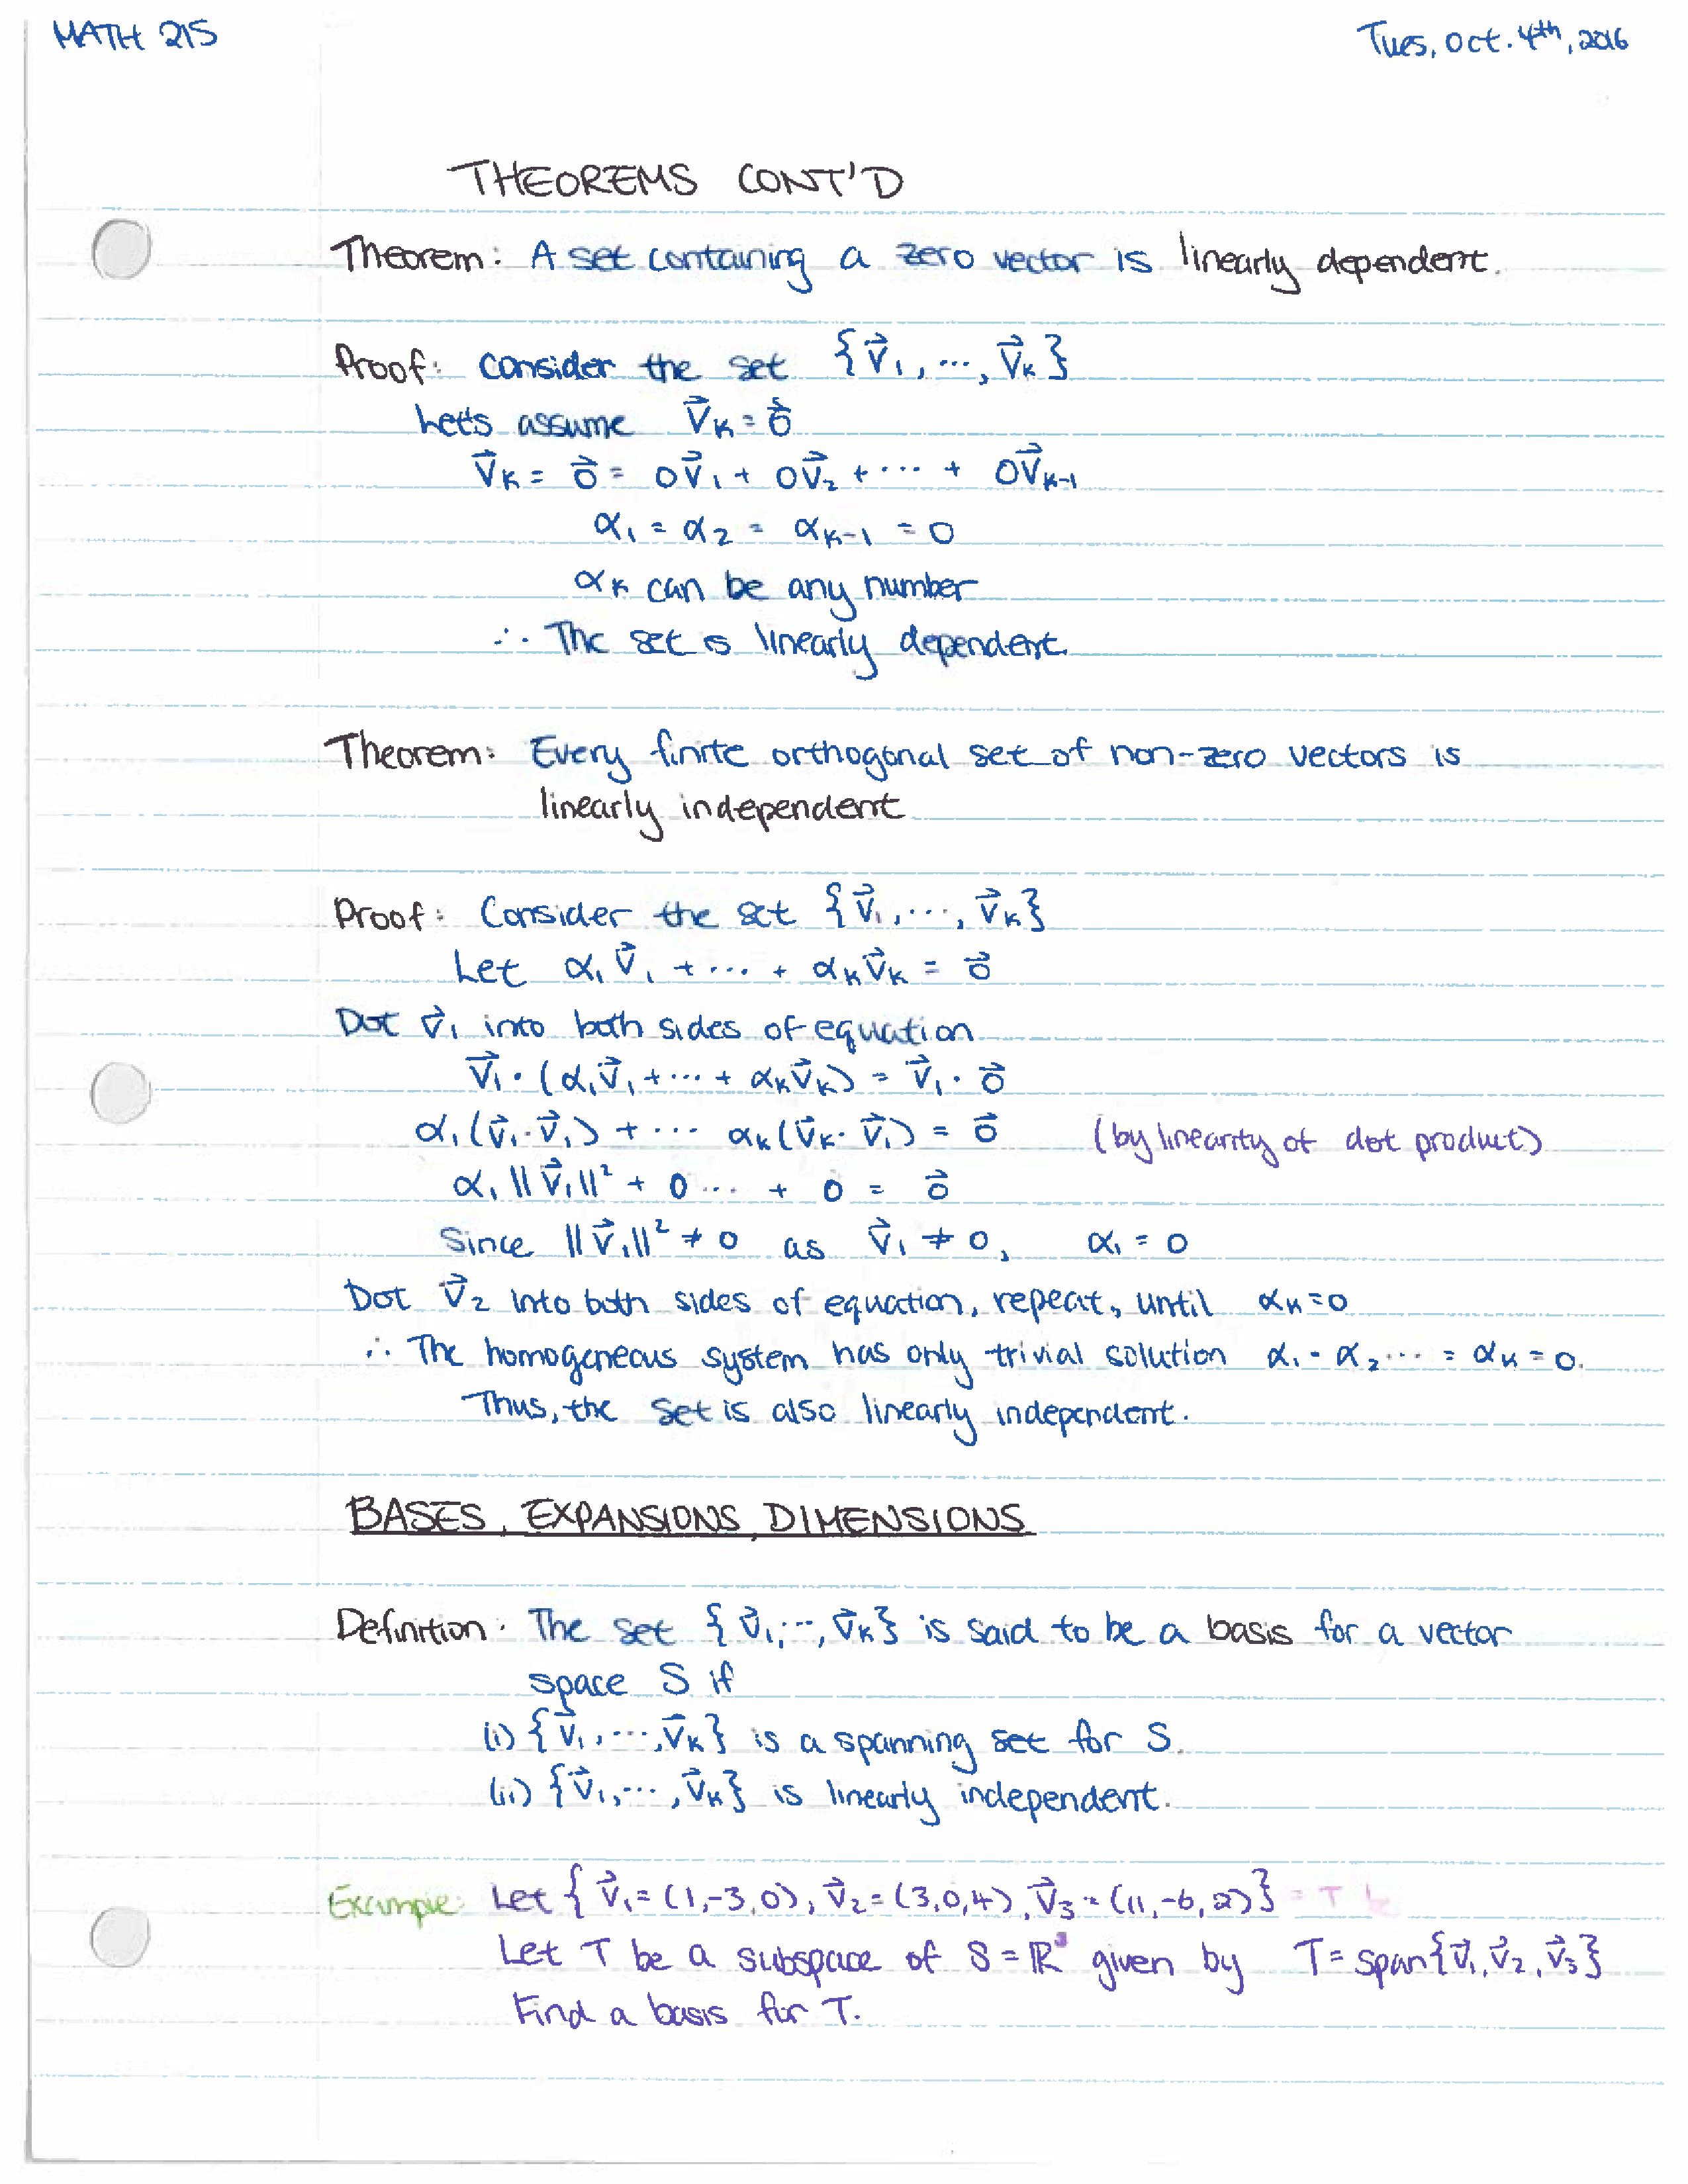 MATH 215
Tues, Oct. 4th, 2016
THEOREMS CONT'D
Theorem: A set containing a zero vector is linearly dependent.
Proof: Consider the set {v⃗₁, ..., v⃗ₖ}
Let's assume v⃗ₖ = 0⃗
v⃗ₖ = 0⃗ = 0v⃗₁ + 0v⃗₂ + ... + 0v⃗ₖ₋₁
α₁ = α₂ = αₖ₋₁ = 0
αₖ can be any number
∴ The set is linearly dependent.
Theorem: Every finite orthogonal set of non-zero vectors is
linearly independent
Proof: Consider the set {v⃗₁, ..., v⃗ₖ}
Let α₁v⃗₁ + ... + αₖv⃗ₖ = 0⃗
Dot v⃗₁ into both sides of equation
v⃗₁ · (α₁v⃗₁ + ... + αₖv⃗ₖ) = v⃗₁ · 0⃗
α₁(v⃗₁ · v⃗₁) + ... αₖ(v⃗ₖ · v⃗₁) = 0⃗ (by linearity of dot product)
α₁||v⃗₁||² + 0 ... + 0 = 0⃗
Since ||v⃗₁||² ≠ 0 as v⃗₁ ≠ 0, α₁ = 0
Dot v⃗₂ into both sides of equation, repeat, until αₖ = 0
∴ The homogeneous system has only trivial solution α₁ = α₂ ... = αₖ = 0.
Thus, the set is also linearly independent.
BASES, EXPANSIONS, DIMENSIONS
Definition: The set {v⃗₁, ..., v⃗ₖ} is said to be a basis for a vector
space S if
(i) {v⃗₁, ..., v⃗ₖ} is a spanning set for S.
(ii) {v⃗₁, ..., v⃗ₖ} is linearly independent.
Example: Let {v⃗₁ = (1,-3,0), v⃗₂ = (3,0,4), v⃗₃ = (11,-6,2)} = T
Let T be a subspace of S = ℝ³ given by T = span{v⃗₁, v⃗₂, v⃗₃}
Find a basis for T.